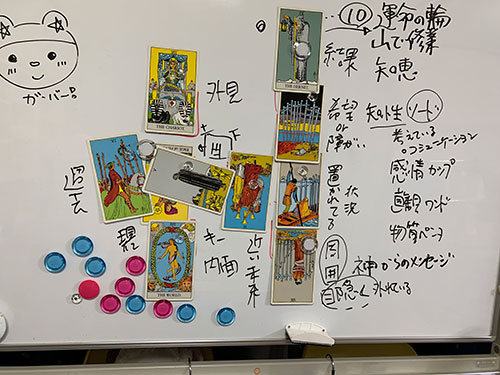 ガーバー。
外見
結果
⑩ 運命の輪
山で修業
知恵
希望
or
障がい
知性 ソード
考えている
コミュニケーション
感情 カップ
直観 ワンド
物質 ペンタ
置かれてる
状況
過去
キー
内面
近い未来
周囲
神からのメッセージ
目隠し 外れている
THE HERMIT
THE CHARIOT
THE WORLD